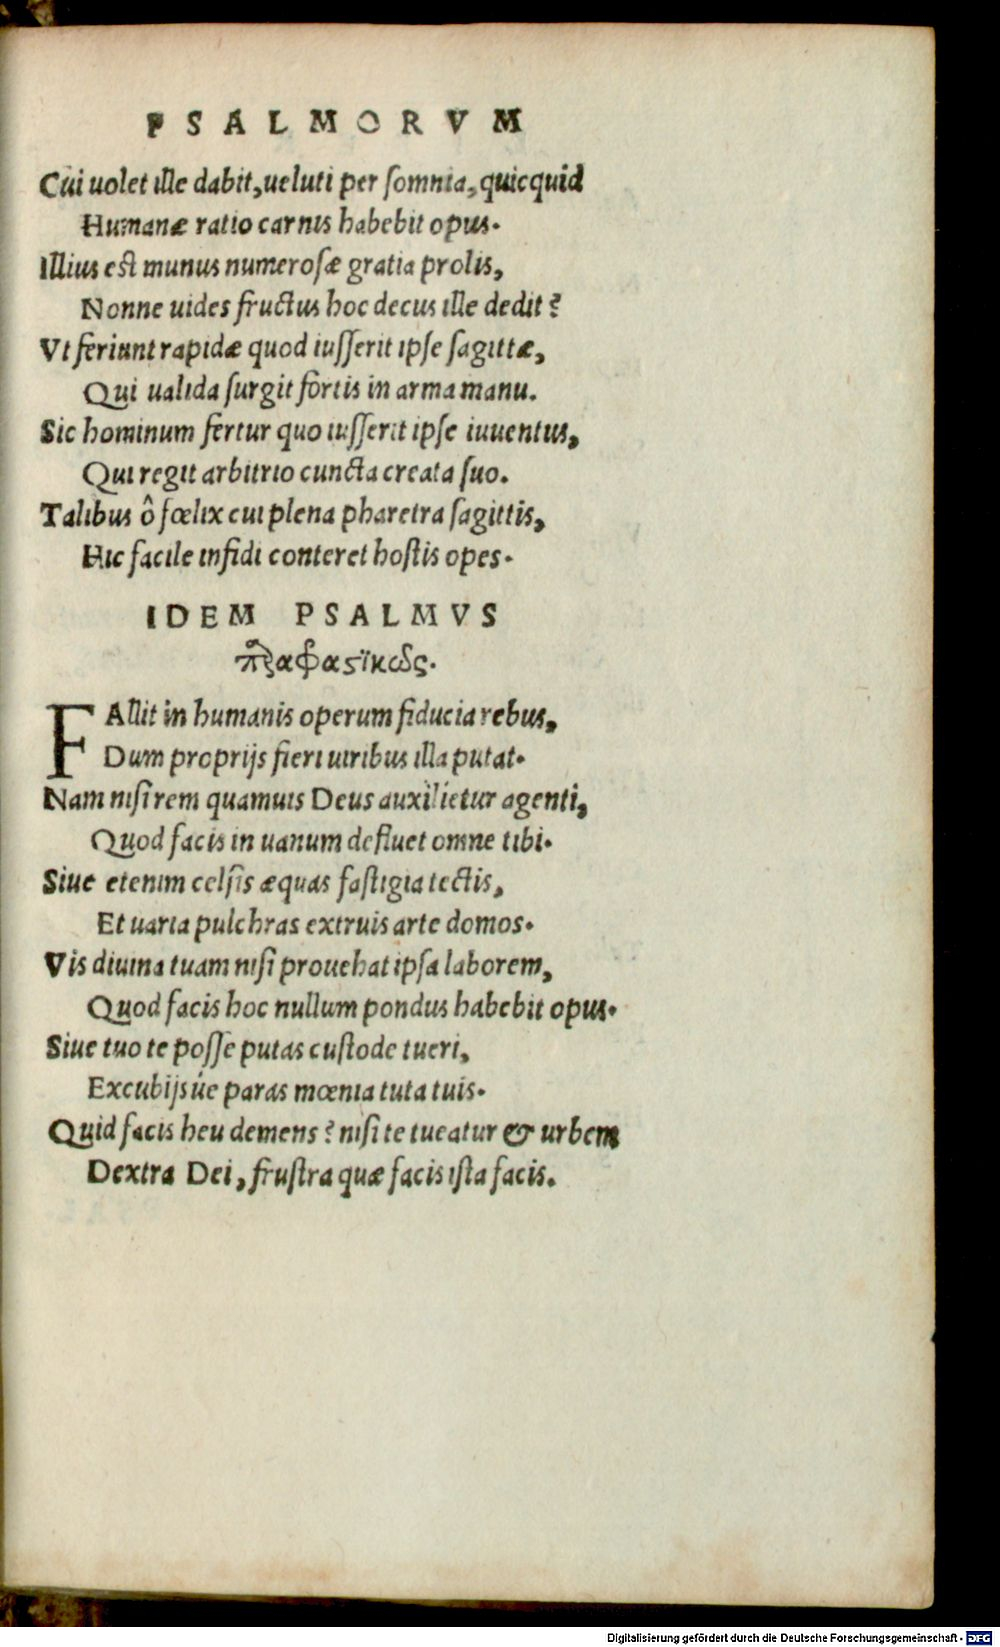 PSALMORVM
Cui uolet ille dabit, ueluti per ſomnia, quicquid
Humanæ ratio carnis habebit opus.
Illius est munus numeroſæ gratia prolis,
Nonne uides fructus hoc decus ille dedit?
Vt feriunt rapidæ quod iuſſerit ipſe ſagittæ,
Qui ualida ſurgit fortis in arma manu.
Sic hominum fertur quo iuſſerit ipſe iuuentus,
Qui regit arbitrio cuncta creata ſuo.
Talibus ô fœlix cui plena pharetra ſagittis,
Hic facile infidi conteret hoſtis opes.
IDEM PSALMVS
παραφραστϊκῶς.
FAllit in humanis operum fiducia rebus,
Dum proprijs fieri uiribus illa putat.
Nam niſi rem quamuis Deus auxilietur agenti,
Quod facis in uanum defluet omne tibi.
Siue etenim celſis æquas faſtigia tectis,
Et uaria pulchras extruis arte domos.
Vis diuina tuam niſi prouehat ipſa laborem,
Quod facis hoc nullum pondus habebit opus.
Siue tuo te poſſe putas cuſtode tueri,
Excubijsúe paras mœnia tuta tuis.
Quid facis heu demens? niſi te tueatur & urbem
Dextra Dei, fruſtra quæ facis iſta facis.
Digitalisierung gefördert durch die Deutsche Forschungsgemeinschaft - DFG